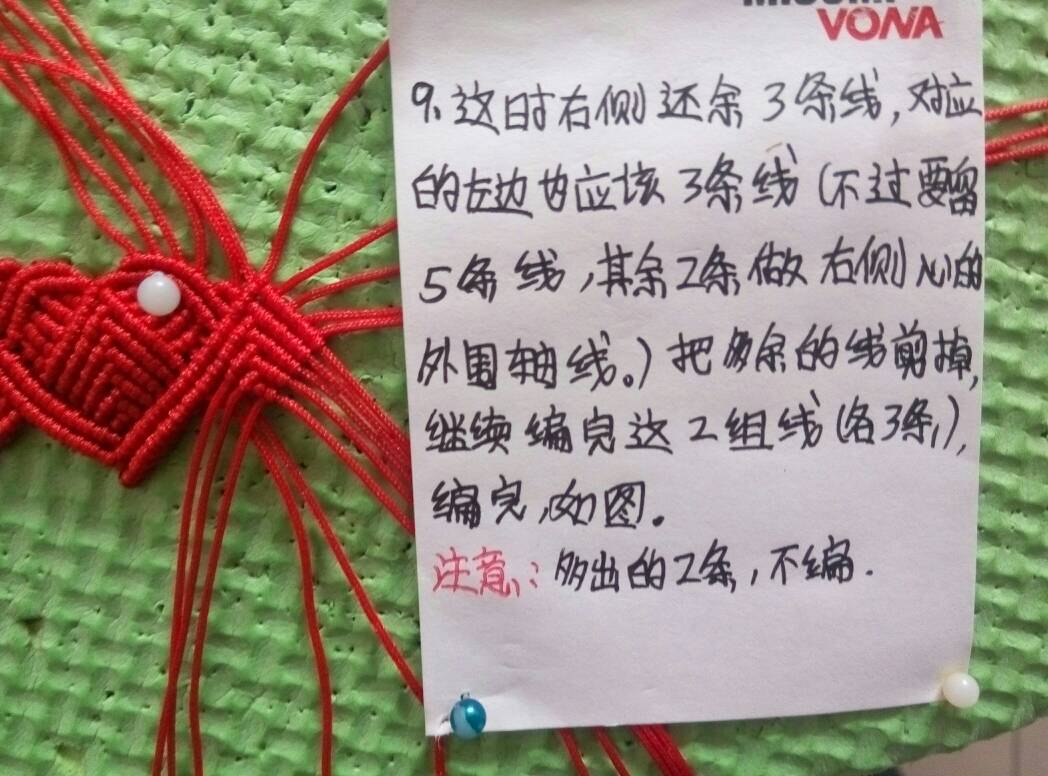 VONA
9、这时右侧还余3条线,对应
的左边也应该3条线(不过要留
5条线,其余2条做右侧心的
外围轴线。)把多余的线剪掉,
继续编完这2组线(各3条,),
编完,如图。
注意:多出的2条,不编.